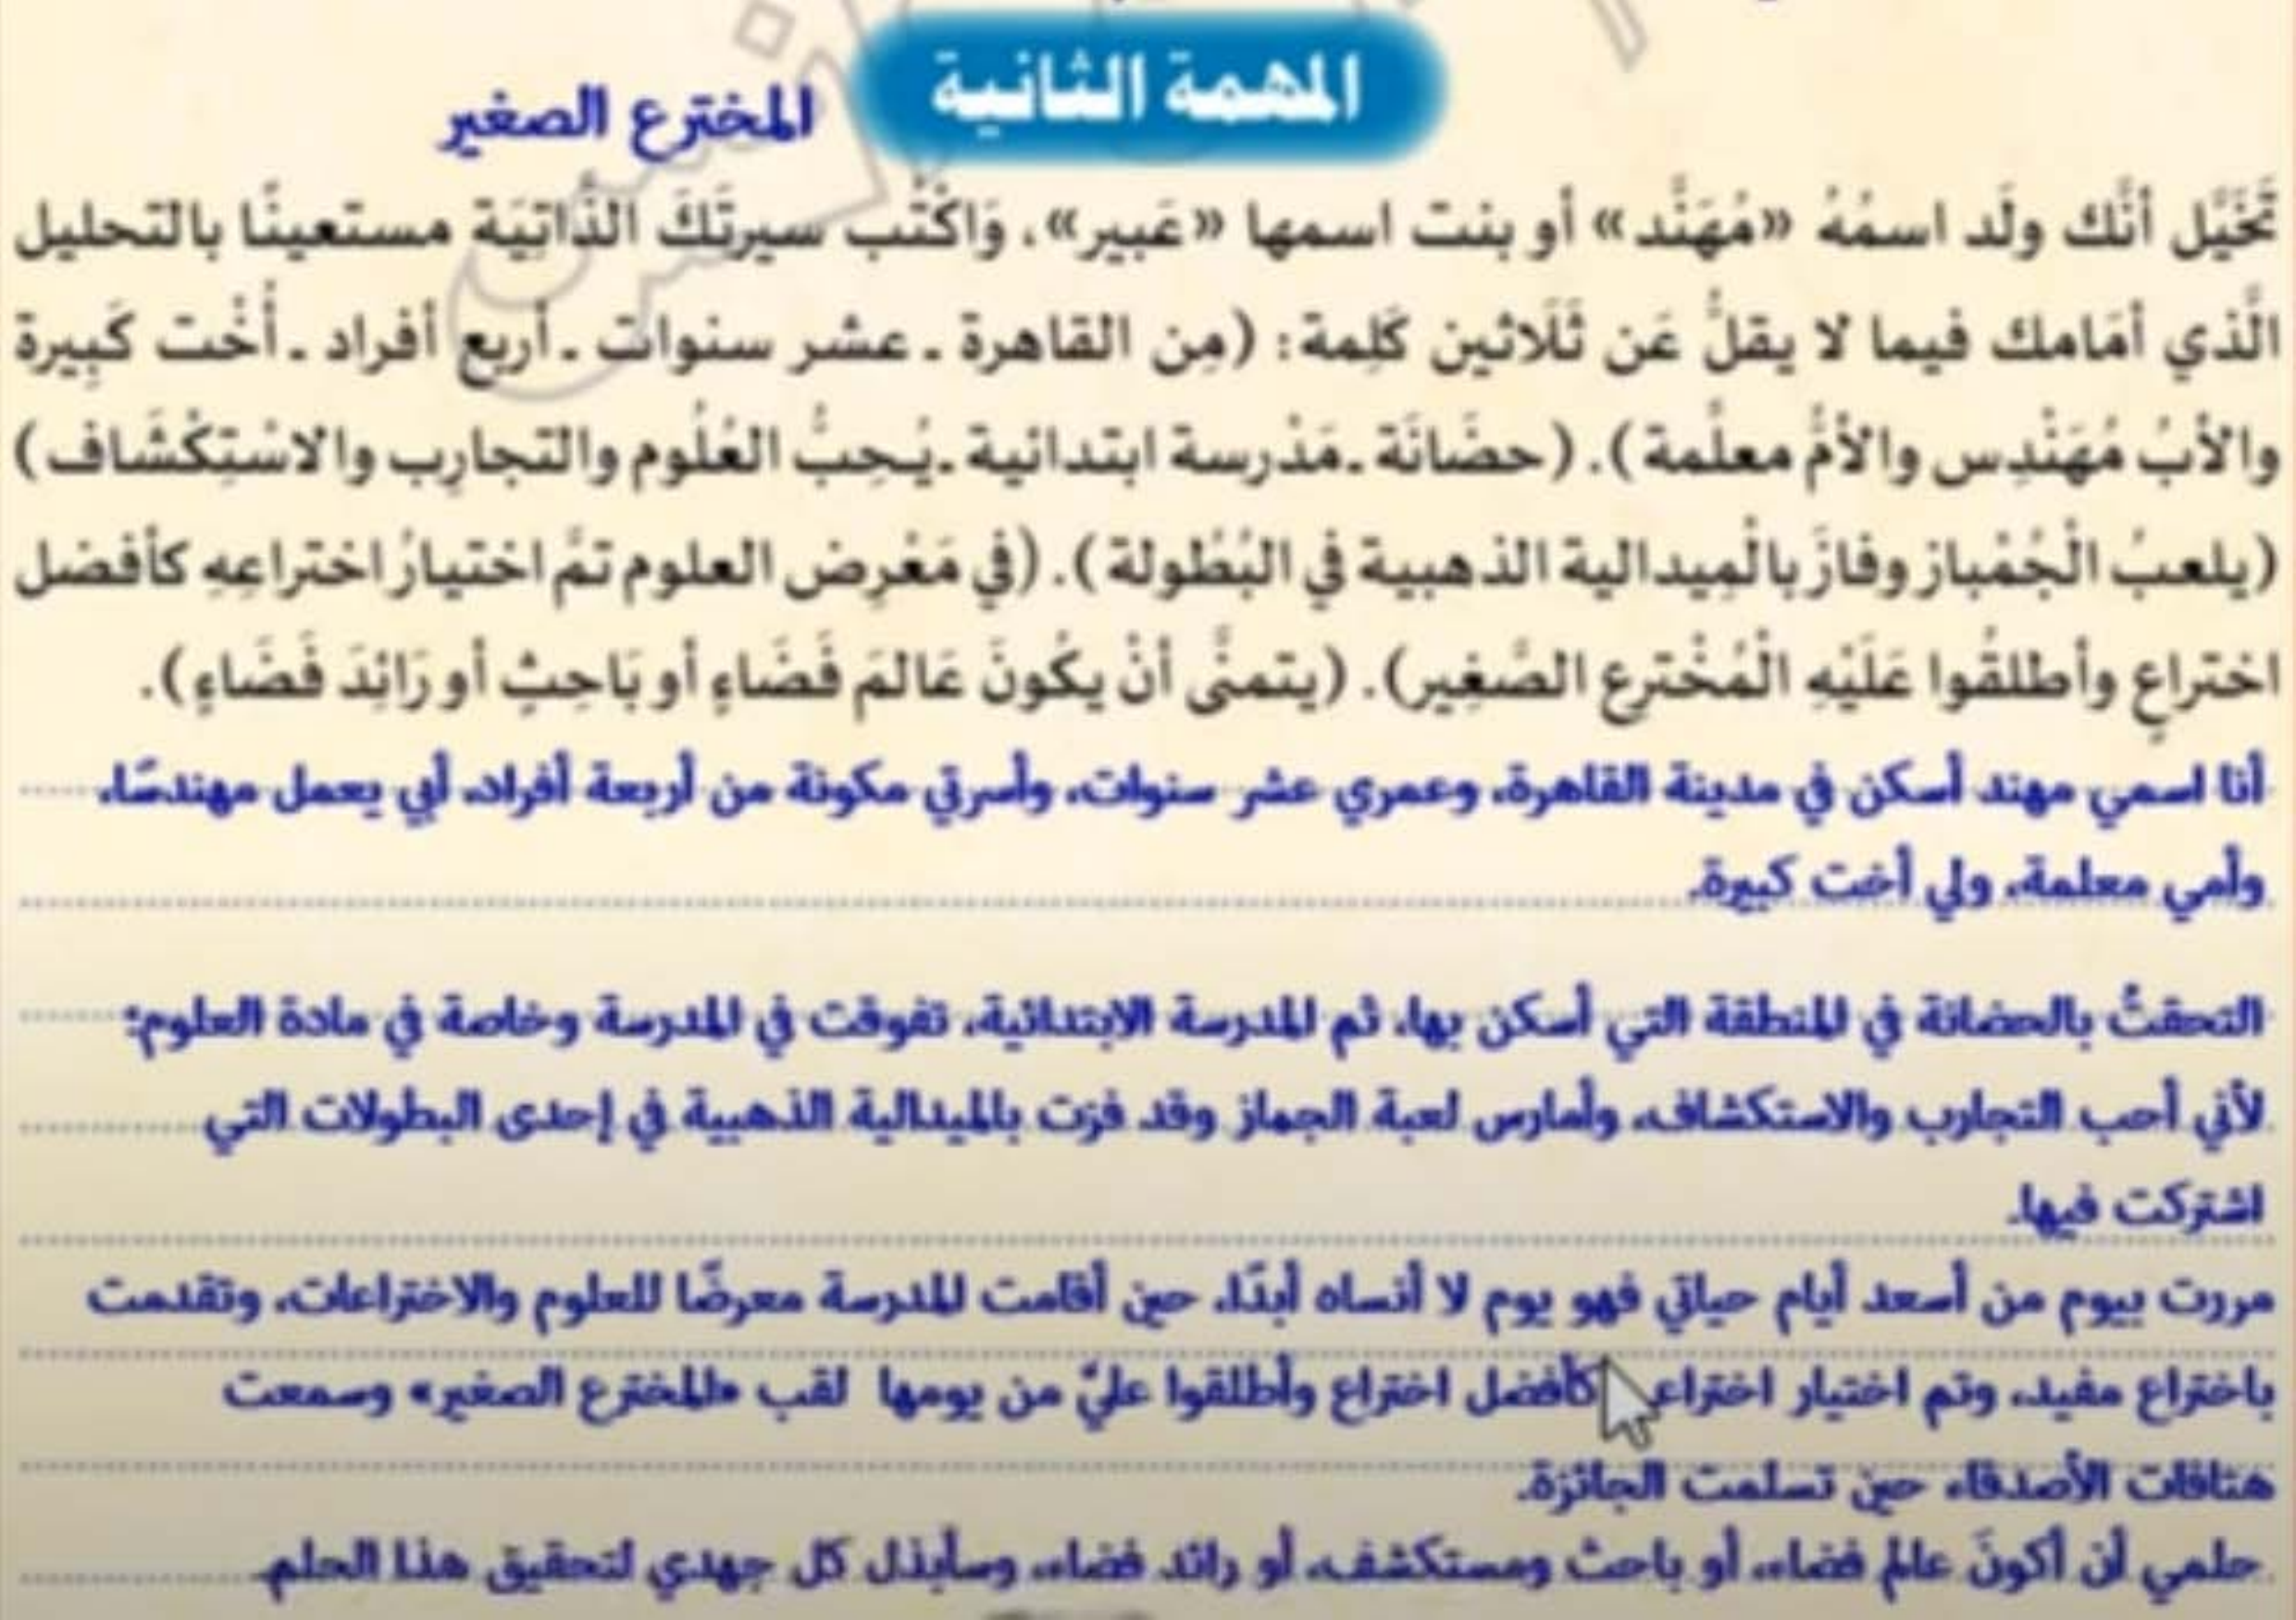 المهمة الثانية
المخترع الصغير
تَخَيَّل أنَّك ولَد اسمُهُ «مُهَنَّد» أو بنت اسمها «عَبير»، وَاكْتُب سيرتَكَ الذَّاتِيَة مستعينًا بالتحليل
الَّذي أمَامك فيما لا يقلُّ عَن ثَلَاثين كَلِمة: (مِن القاهرة ـ عشر سنوات ـ أربع أفراد ـ أُخْت كَبِيرة
والأبُ مُهَنْدِس والأمُّ معلِّمة). (حضَانَة ـ مَدْرسة ابتدائية ـ يُحِبُّ العُلُوم والتجارِب والاسْتِكْشَاف)
(يلعبُ الْجُمْباز وفازَ بالْمِيدالية الذهبية في البُطُولة). (في مَعْرِض العلوم تمَّ اختيارُ اختراعِهِ كأفضل
اختراعٍ وأطلقُوا عَلَيْهِ الْمُخْترِع الصَّغِير). (يتمنَّى أنْ يكُونَ عَالمَ فَضَاءٍ أو بَاحِثٍ أو رَائِدَ فَضَاءٍ).
أنا اسمي مهند أسكن في مدينة القاهرة، وعمري عشر سنوات، وأسرتي مكونة من أربعة أفراد، أبي يعمل مهندسًا،
وأمي معلمة، ولي أخت كبيرة.
التحقتُ بالحضانة في المنطقة التي أسكن بها، ثم المدرسة الابتدائية، تفوقت في المدرسة وخاصة في مادة العلوم؛
لأني أحب التجارب والاستكشاف، وأمارس لعبة الجماز وقد فزت بالميدالية الذهبية في إحدى البطولات التي
اشتركت فيها.
مررت بيوم من أسعد أيام حياتي فهو يوم لا أنساه أبدًا، حين أقامت المدرسة معرضًا للعلوم والاختراعات، وتقدمت
باختراع مفيد، وتم اختيار اختراعي كأفضل اختراع وأطلقوا عليّ من يومها لقب «المخترع الصغير» وسمعت
هتافات الأصدقاء حين تسلمت الجائزة.
حلمي أن أكونَ عالم فضاء، أو باحث ومستكشف، أو رائد فضاء، وسأبذل كل جهدي لتحقيق هذا الحلم.